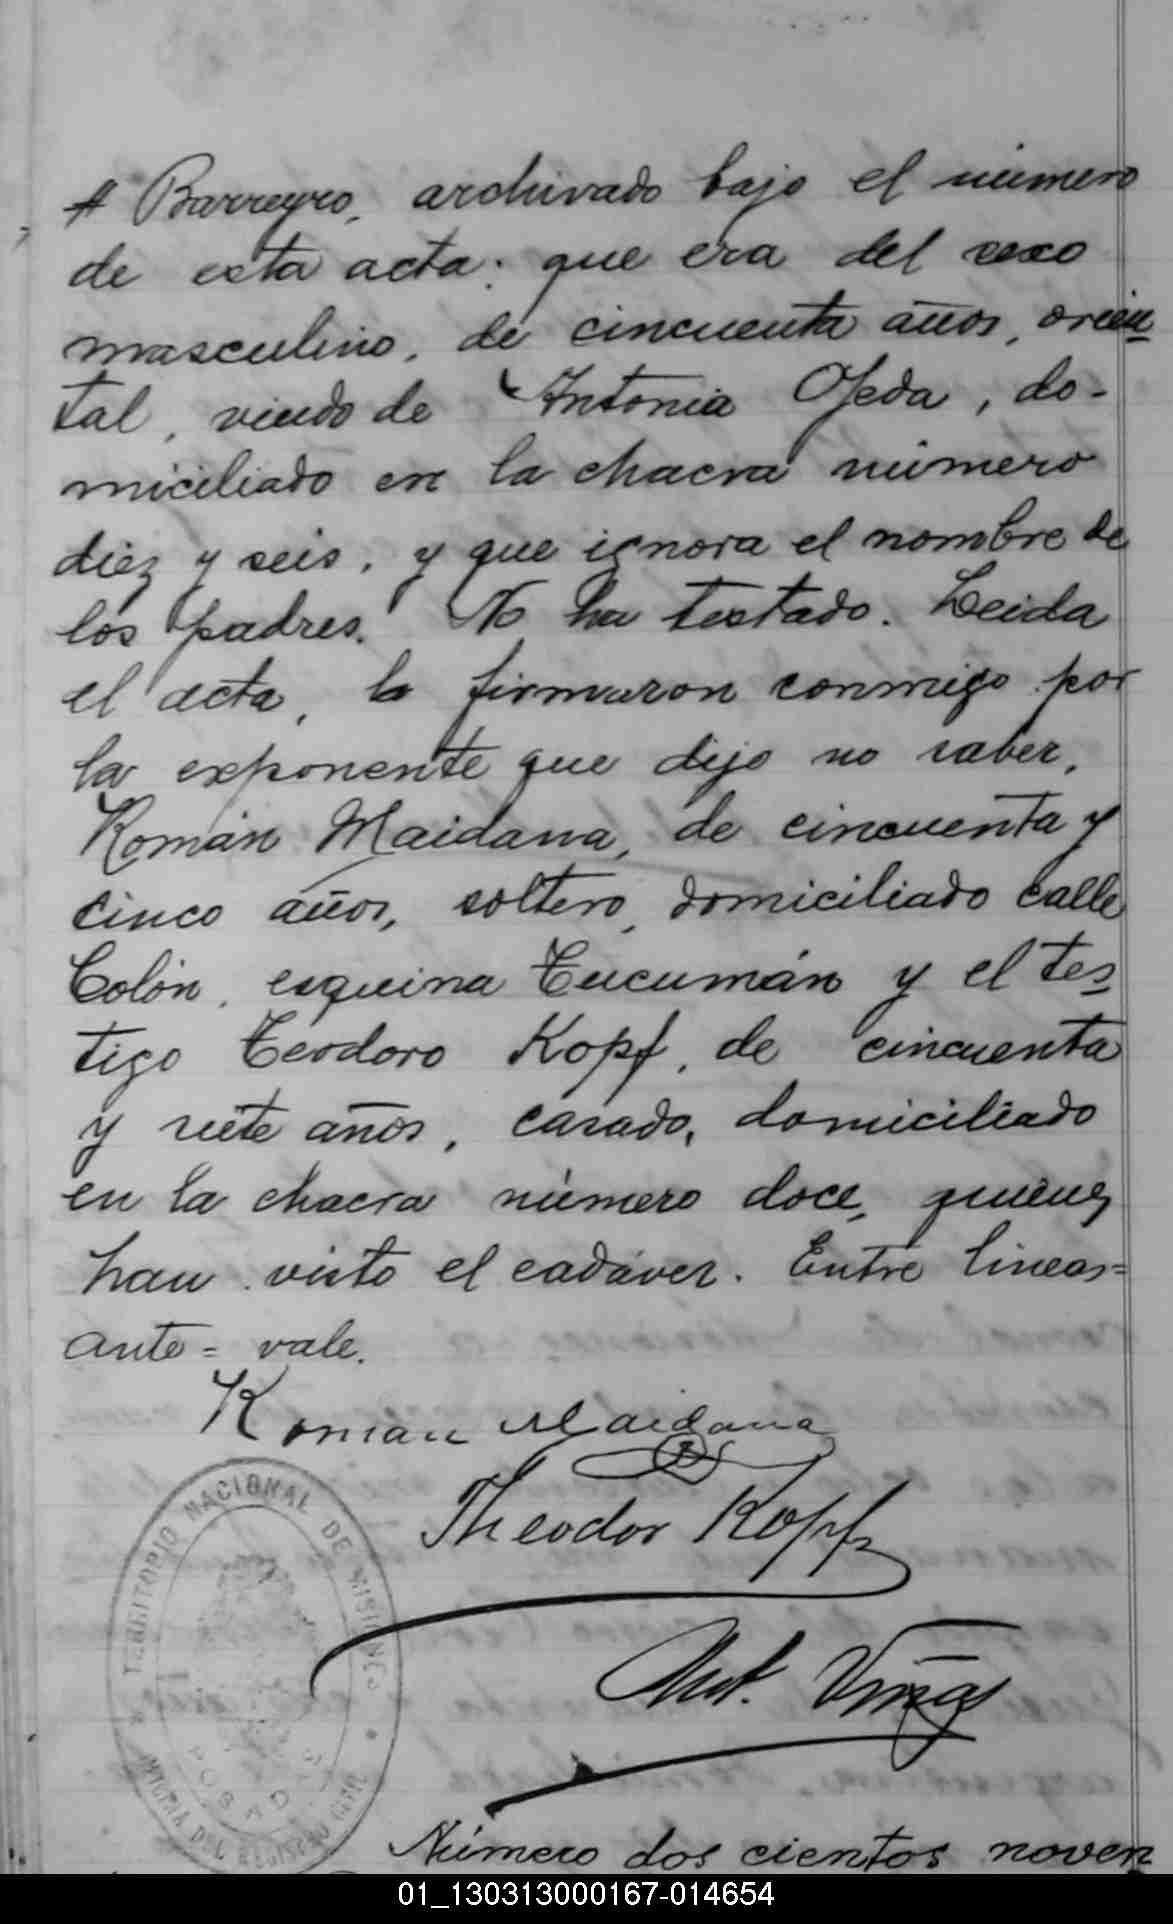 # Barreyro, archivado bajo el número
de esta acta; que era del sexo
masculino, de cincuenta años, orien
tal, viudo de Antonia Ojeda, do-
miciliado en la chacra número
diez y seis, y que ignora el nombre de
los padres. No ha testado. Leida
el acta, la firmaron conmigo por
la exponente que dijo no saber,
Román Maidana, de cincuenta y
cinco años, soltero, domiciliado calle
Colón, esquina Tucumán y el tes
tigo Teodoro Kopf, de cincuenta
y siete años, casado, domiciliado
en la chacra número doce, quienes
han visto el cadáver. Entre lineas=
ante = vale.
Roman Maidana
Theodor Kopf
Ant. Viñas
TERRITORIO NACIONAL DE MISIONES
POSADAS
OFICINA DEL REGISTRO CIVIL
Número dos cientos noven
01_130313000167-014654